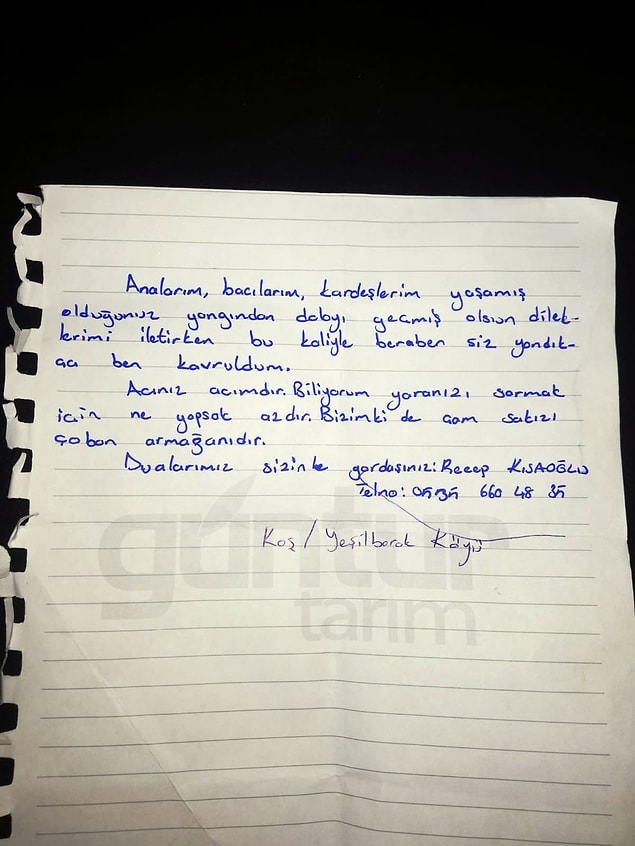 Analarım, bacılarım, kardeşlerim yaşamış
olduğunuz yangından dolayı geçmiş olsun dilek-
lerimi iletirken bu koliyle beraber siz yandık-
ça ben kavruldum.
Acınız acımdır. Biliyorum yaranızı sarmak
için ne yapsak azdır. Bizimki de çam sakızı
çoban armağanıdır.
Dualarımız sizinle gardaşınız: Recep KISAOĞLU
Telno: 0535 660 48 35
Kaş / Yeşilbarak Köyü
güntur
tarım